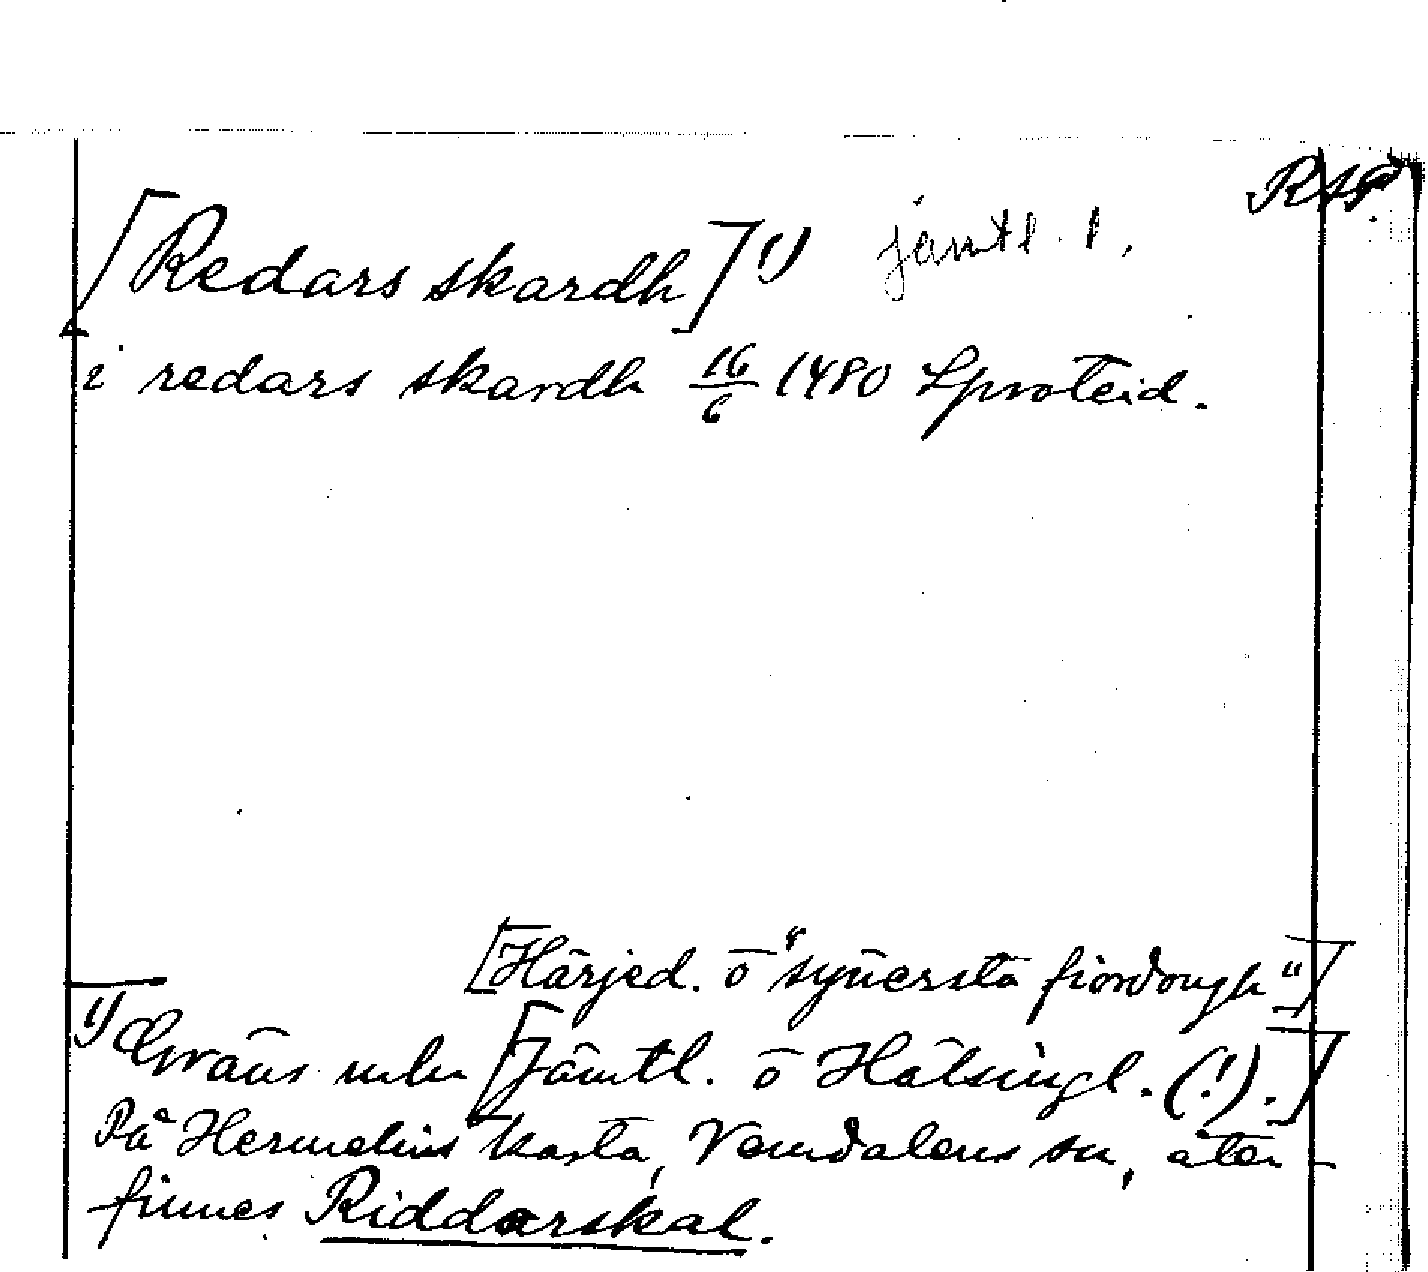 [Redars skardh] 1) jämtl. l.
i redars skardh 16/6 1480 Sproteid.
[Härjed. o "synersta fiordongh"]
1) Gräns mln [Jämtl. o Hälsingl. (!).]
På Hermelins karta, Vemdalens sn, åter-
finnes Riddarskal.